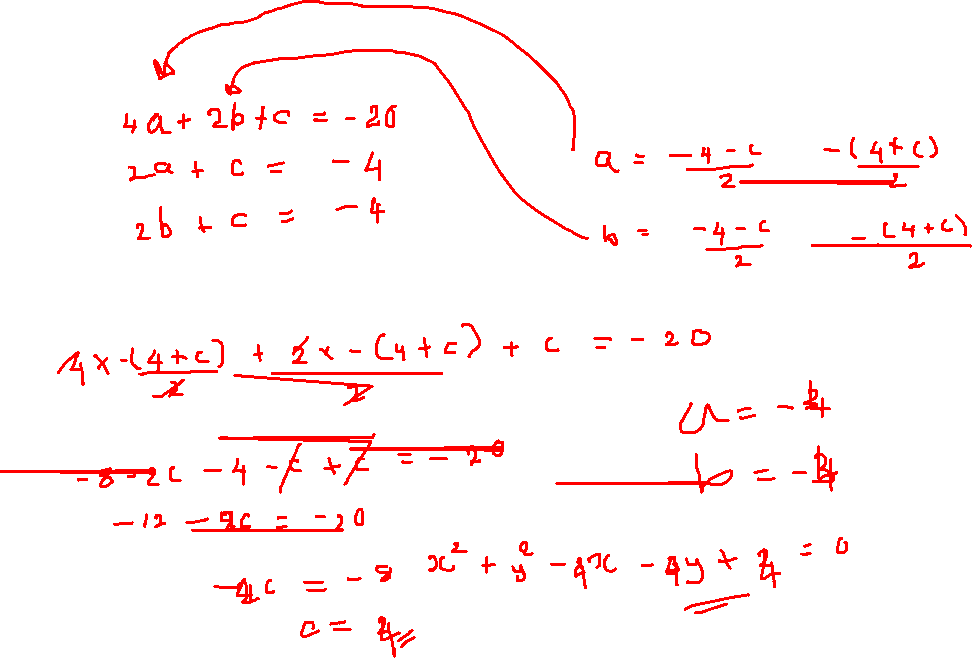 4a + 2b + c = -20
2a + c = -4
2b + c = -4
a = -4-c/2 -(4+c)/2
b = -4-c/2 -(4+c)/2
4 x -(4+c)/2 + 2 x -(4+c)/2 + c = -20
-8-2c -4 -c +c = -20
-12 -2c = -20
a = -4
b = -4
-2c = -8
c = 4
x² + y² - 4x - 4y + 4 = 0